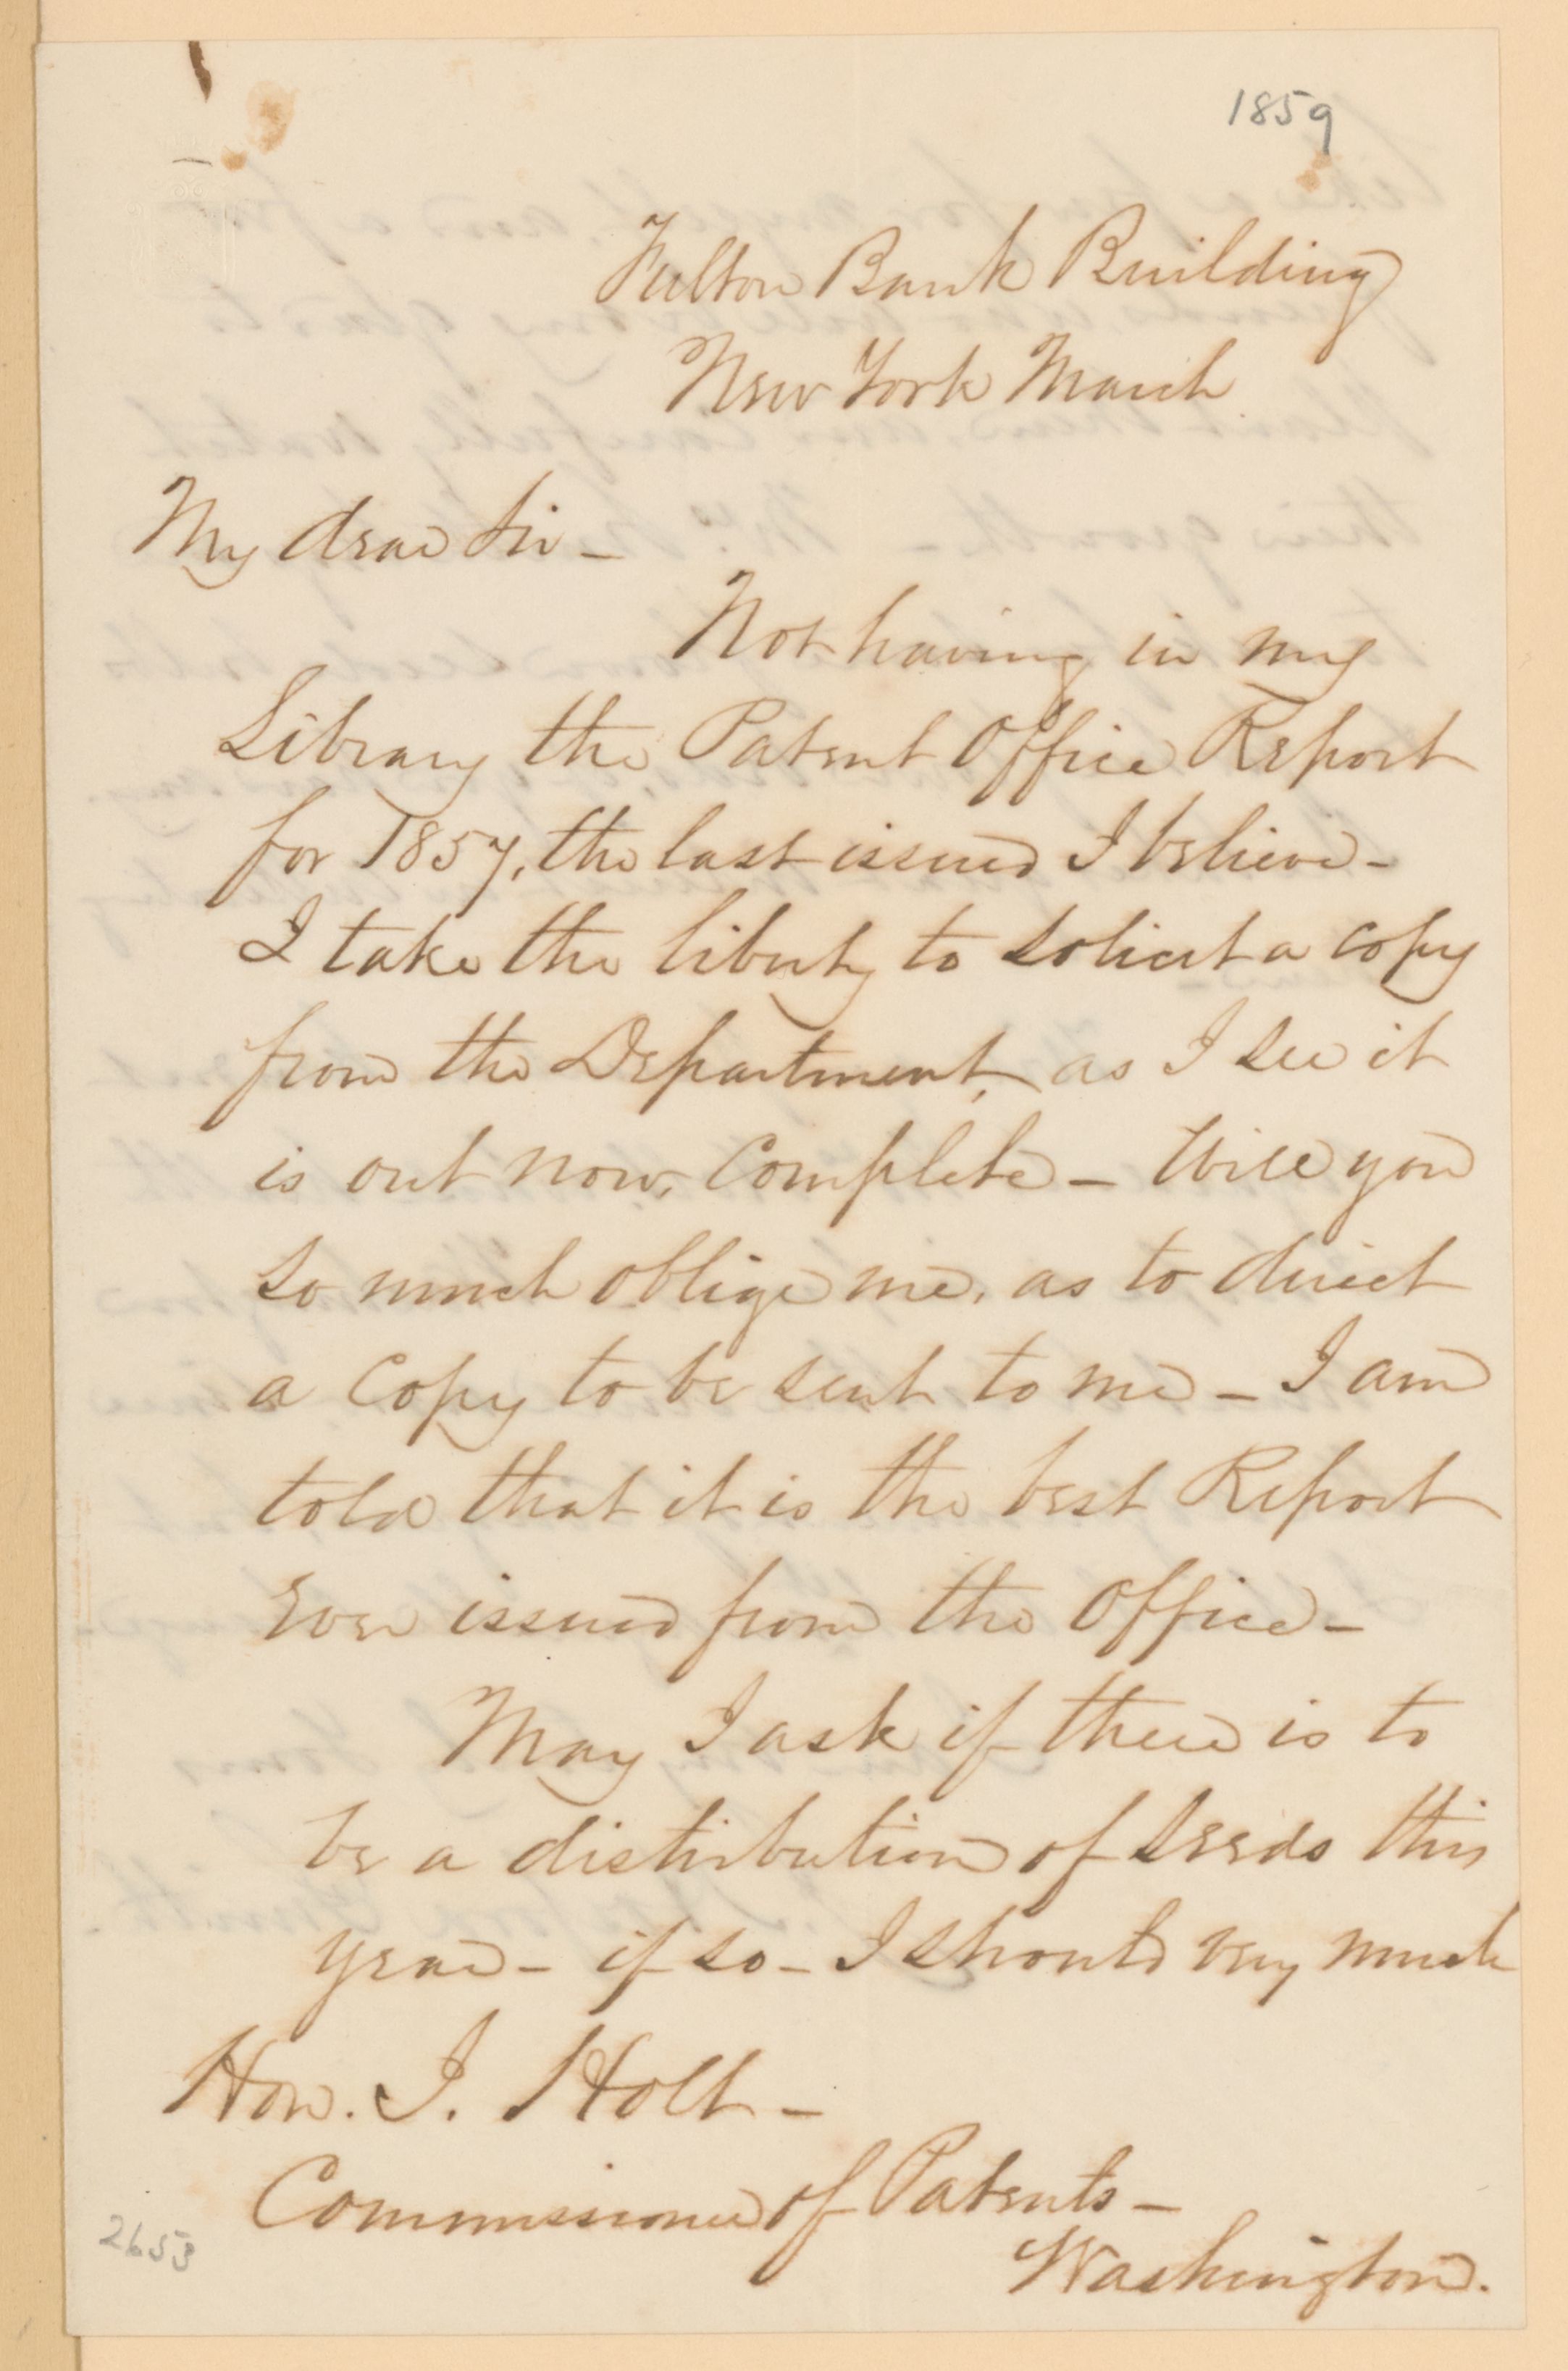 1859
Fulton Bank Building
New York March
My dear Sir -
Not having in my
Library the Patent Office Report
for 1857, the last issued I believe -
I take the liberty to solicit a copy
from the Department, as I see it
is out now, complete - Will you
so much oblige me, as to direct
a copy to be sent to me - I am
told that it is the best Report
Ever issued from the Office -
May I ask if there is to
be a distribution of seeds this
year - if so - I should very much
Hon. J. Holt -
Commissioner of Patents -
Washington.
2653